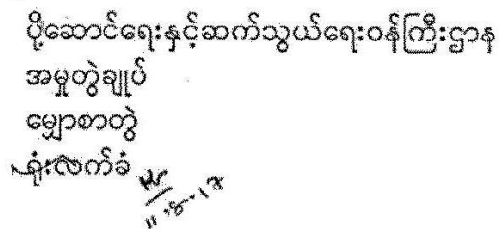 ပို့ဆောင်ရေးနှင့်ဆက်သွယ်ရေးဝန်ကြီးဌာန
အမှုတွဲချုပ်
မျှောစာတွဲ
ရုံးလက်ခံ